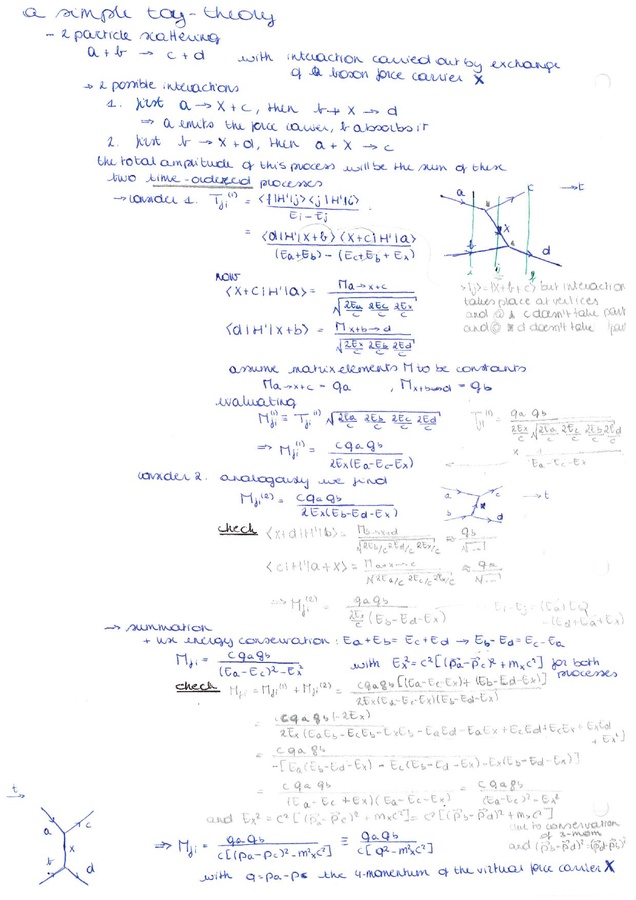 a simple toy-theory
- 2 particle scattering
a + b → c + d with interaction carried out by exchange
of a boson force carrier X
→ 2 possible interactions
1. first a → X + c, then b + X → d
⇒ a emits the force carrier, b absorbs it
2. first b → X + d, then a + X → c
the total amplitude of this process will be the sum of these
two time-ordered processes
→ consider 1. Tji⁽¹⁾ = <f|H'|j><j|H'|i> / Ei - Ej
= <d|H'|X+b><X+c|H'|a> / (Ea+Eb) - (Ec+Eb+Ex)
a c → t
X
b d
i j f
>|j> = |X+b+c> but interaction
takes place at vertices
and @ c doesn't take part
and @ d doesn't take part
now
<X+c|H'|a> = Ma→x+c / √(2Ea/c 2Ec/c 2Ex/c)
<d|H'|x+b> = Mx+b→d / √(2Ex/c 2Eb/c 2Ed/c)
assume matrix elements M to be constants
Ma→x+c = ga , Mx+b→d = gb
evaluating
Mji⁽¹⁾ = Tji⁽¹⁾ √(2Ea/c 2Eb/c 2Ec/c 2Ed/c)
Tji⁽¹⁾ = ga gb / 2Ex/c √(2Ea/c 2Ec/c 2Eb/c 2Ed/c)
x 1 / Ea-Ec-Ex
⇒ Mji⁽¹⁾ = c ga gb / 2Ex(Ea-Ec-Ex)
consider 2. analogously we find
Mji⁽²⁾ = c ga gb / 2Ex(Eb-Ed-Ex)
a c → t
b d
check <x+d|H'|b> = Mb→x+d / √(2Eb/c 2Ed/c 2Ex/c) = gb / √...
<c|H'|a+x> = Ma+x→c / √(2Ea/c 2Ec/c 2Ex/c) = ga / √...
⇒ Mji⁽²⁾ = ga gb / 2Ex/c (Eb-Ed-Ex)
Ei-Ej = (Ea+Eb) - (Ed+Ea+Ex)
→ summation
+ use energy conservation : Ea+Eb = Ec+Ed → Eb-Ed = Ec-Ea
Mji = c ga gb / (Ea-Ec)² - Ex² with Ex² = c²[(p⃗a-p⃗c)² + mx²c²] for both
processes
check Mji = Mji⁽¹⁾ + Mji⁽²⁾ = c ga gb [(Ea-Ec-Ex) + (Eb-Ed-Ex)] / 2Ex(Ea-Ec-Ex)(Eb-Ed-Ex)
= c ga gb (-2Ex) / 2Ex(EaEb-EcEb-ExEb-EaEd-EaEx+EcEd+EcEx+ExEd
+ Ex²]
= c ga gb / -[Ea(Eb-Ed-Ex) - Ec(Eb-Ed-Ex) - Ex(Eb-Ed-Ex)]
= c ga gb / (Ea-Ec+Ex)(Ea-Ec-Ex) = c ga gb / (Ea-Ec)²-Ex²
and Ex² = c²[(p⃗a-p⃗c)² + mx²c²] = c²[(p⃗b-p⃗d)² + mx²c²]
due to conservation
of 3-mom
and (p⃗b-p⃗d)² = (p⃗d-p⃗b)²
t →
a c
x
b d
⇒ Mji = ga gb / c[(pa-pc)²-m²xc²] ≡ ga gb / c[q²-m²xc²]
with q = pa-pc the 4-momentum of the virtual force carrier X